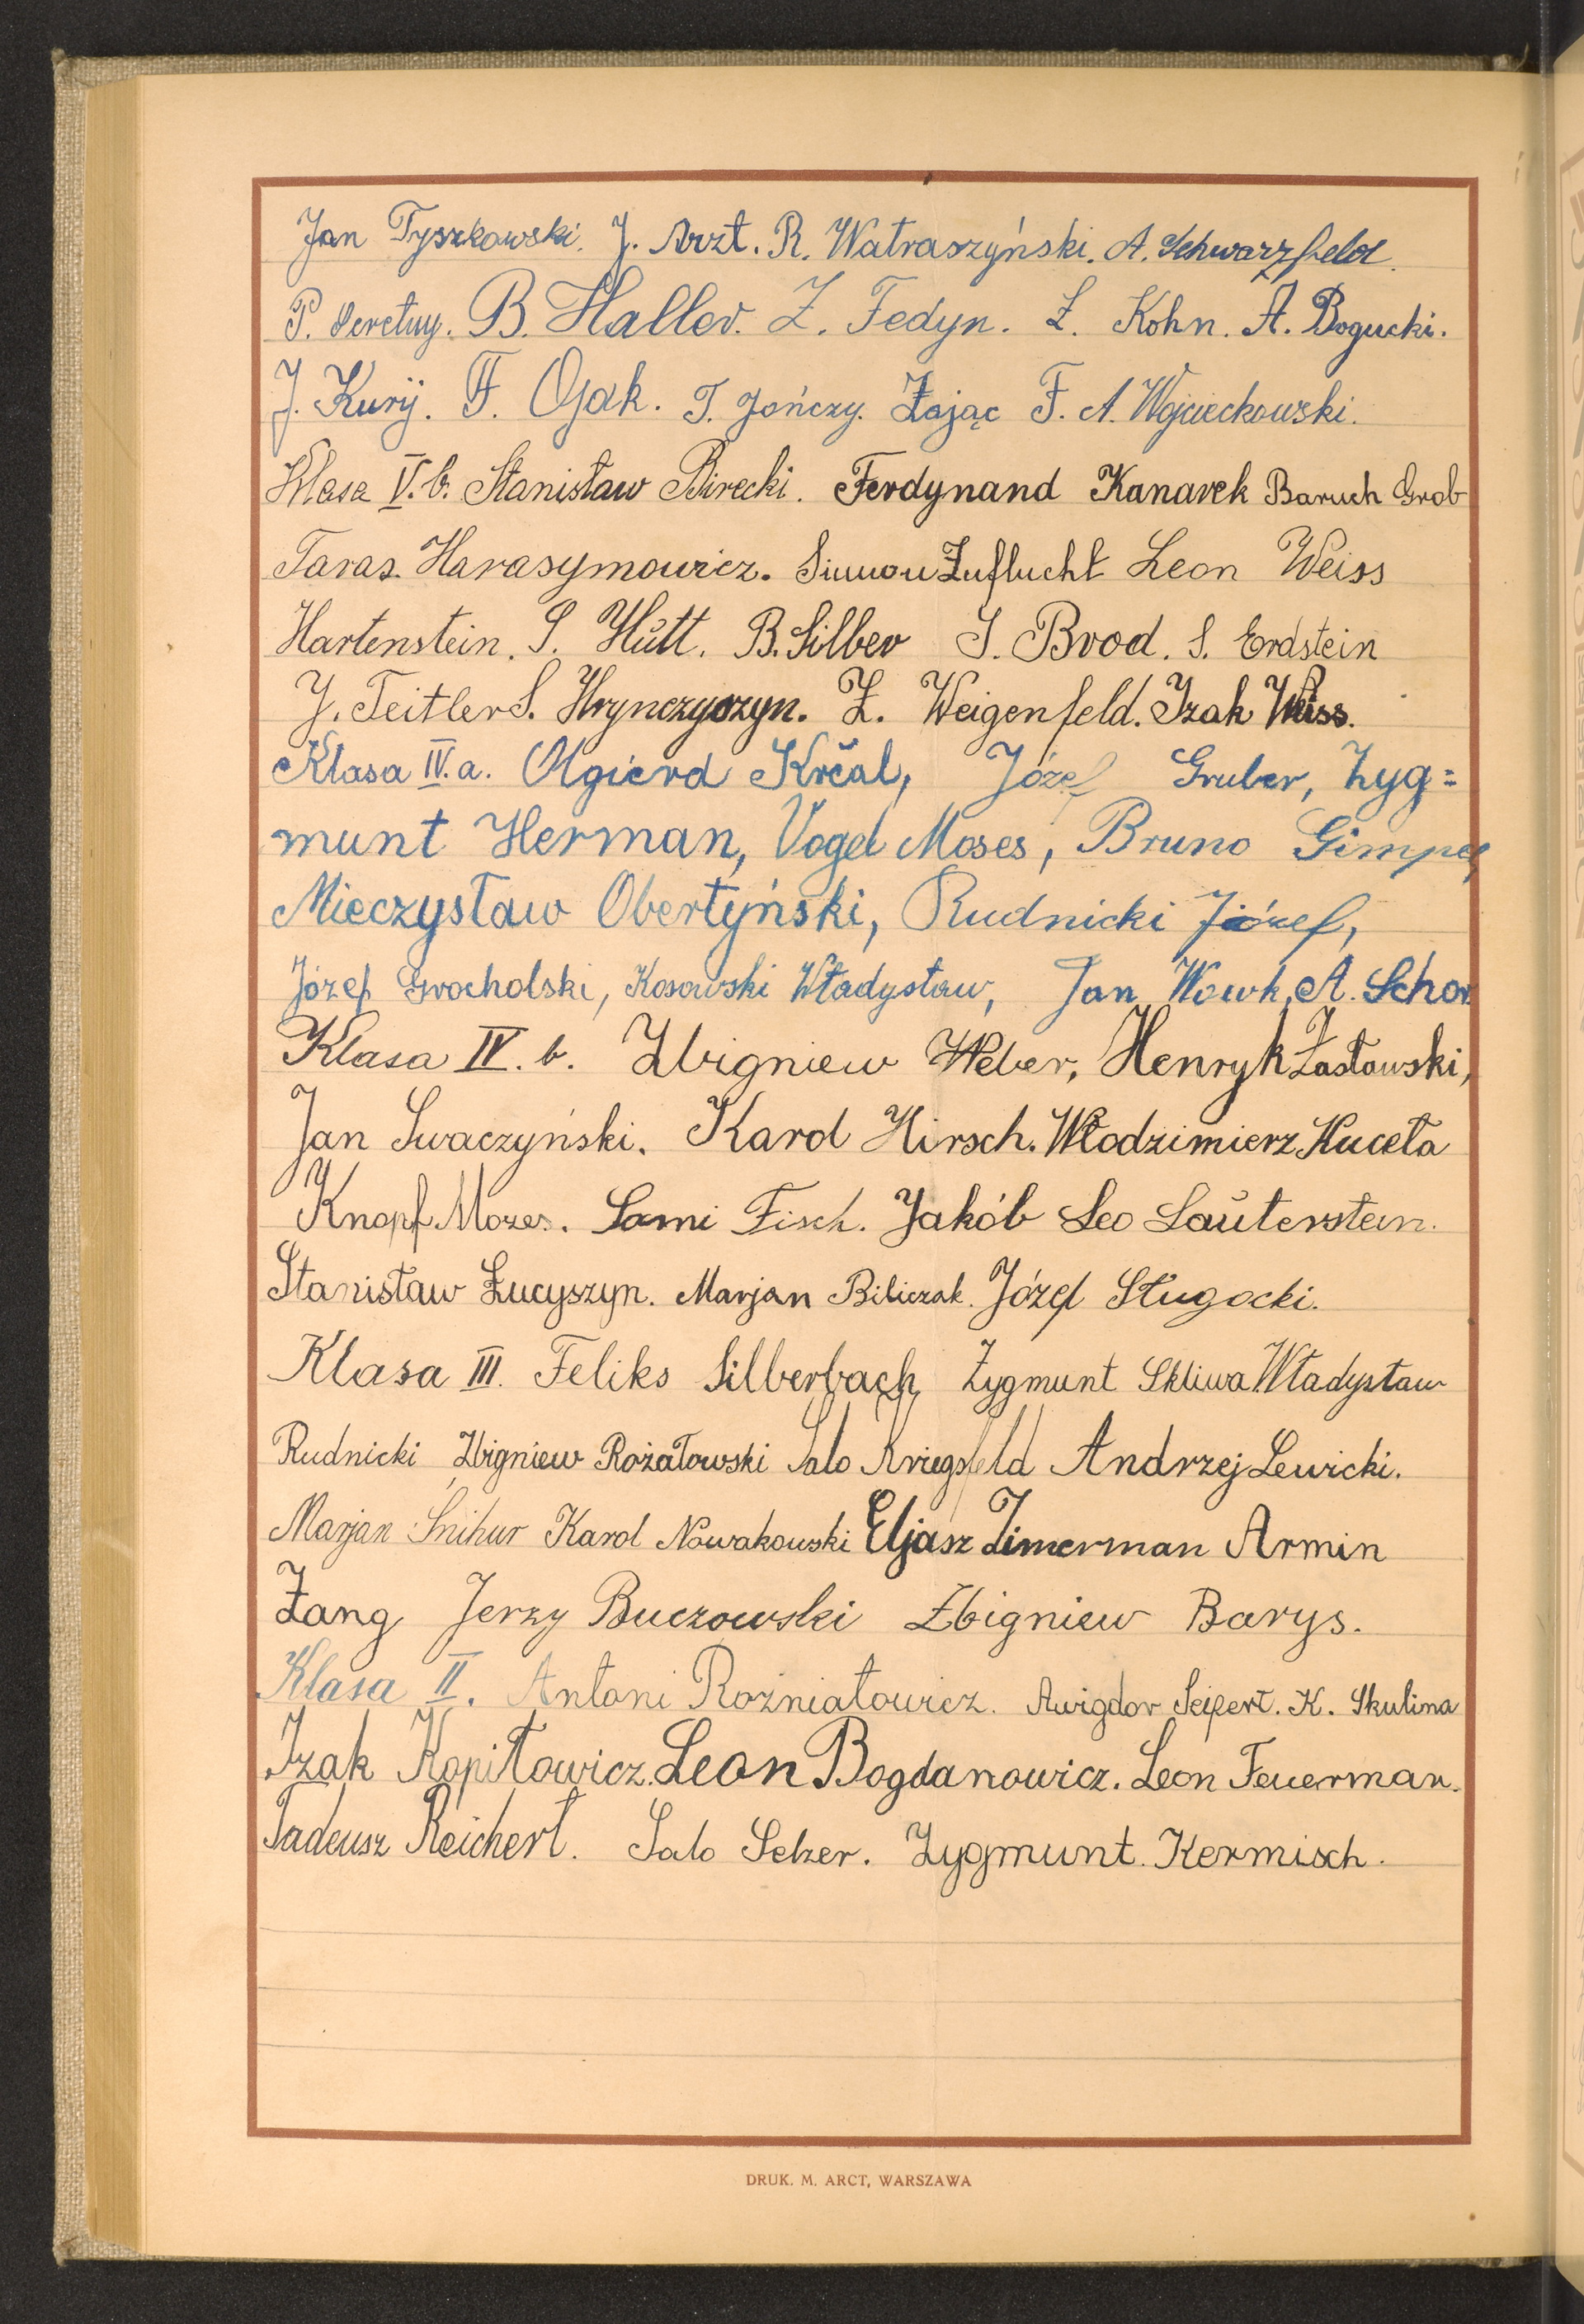 Jan Tyszkowski. J. Arzt. R. Watraszyński. A. Schwarzfeld.
P. B. Haller. Z. Fedyn. Z. Kohn. A. Bogucki.
J. Kurÿ. F. Ojak. T. Jończy. Zając F. A. Wojciechowski.
Klasa V.b. Stanisław Birecki. Ferdynand Kanarek Baruch Grob
Taras. Harasymowicz. Simon Zuflucht Leon Weiss
Hartenstein. S. Hütt. B. Silber J. Brod. S. Erdstein
J. Teitler S. Hrynczyszyn. Z. Weigenfeld. Izak Weiss.
Klasa IV.a. Olgierd Krčal, Józef Gruber, Zyg=
munt Herman, Vogel Moses, Bruno Gimpel,
Mieczysław Obertyński, Rudnicki Józef,
Józef Grocholski, Kosowski Władysław, Jan Wowk, A. Schor
Klasa IV. b. Zbigniew Weber, Henryk Zasławski,
Jan Swaczyński. Karol Hirsch. Włodzimierz Kuceła
Knopf Mozes. Sami Fisch. Jakób Leo Lauterstein.
Stanisław Łucyszyn. Marjan Biliczak. Józef Sługocki.
Klasa III. Feliks Silberbach Zygmunt Skliwa Władysław
Rudnicki Zbigniew Rożałowski Salo Kriegsfeld Andrzej Lewicki.
Marjan Snihur Karol Nowakowski Eljasz Zimerman Armin
Zang Jerzy Buczowski Zbigniew Barys.
Klasa II. Antoni Rożniatowicz. Awigdor Seifert. K. Skulina
Izak Kopiłowicz. Leon Bogdanowicz. Leon Feuerman.
Tadeusz Reichert. Salo Selzer. Zygmunt. Kermisch.
DRUK. M. ARCT, WARSZAWA